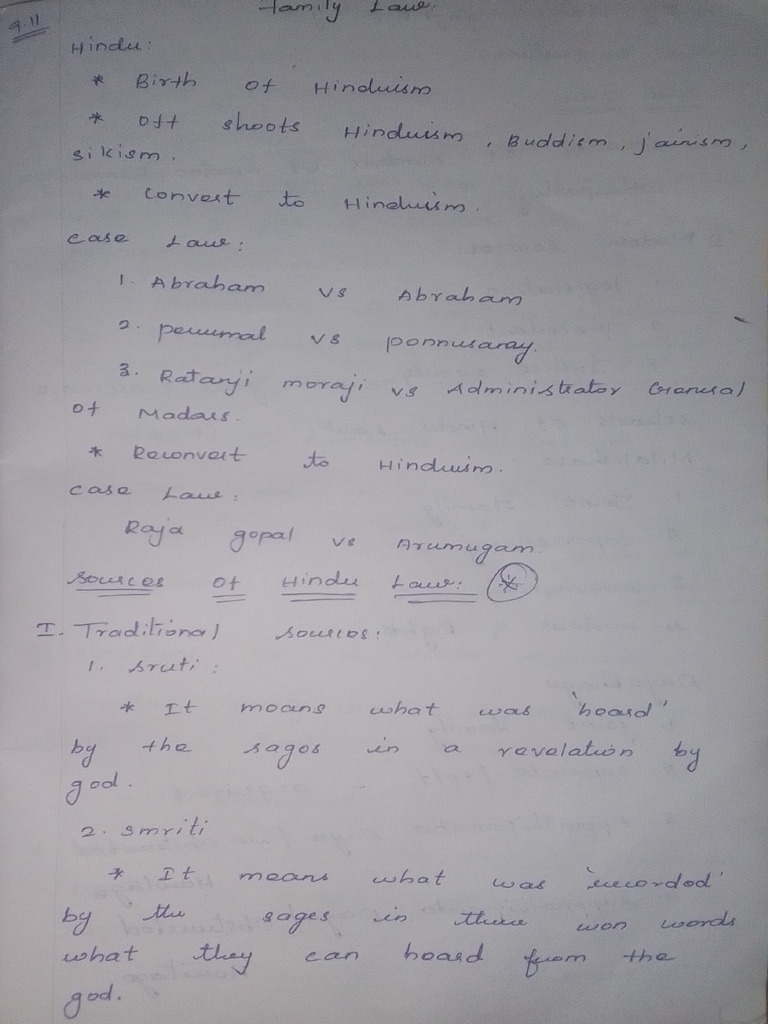 Family Law.
9.11
Hindu:
* Birth of Hinduism
* Off shoots Hinduism, Buddism, jainism,
sikism.
* Convert to Hinduism.
Case Law:
1. Abraham vs Abraham
2. perumal vs ponnusaray.
3. Ratanji moraji vs Administrator General
of Madars.
* Reconvert to Hinduism.
Case Law:
Raja gopal vs Arumugam.
Sources of Hindu Law: *
I. Traditional sources:
1. sruti:
* It means what was 'heard'
by the sages in a revelation by
god.
2. smriti
* It means what was 'recorded'
by the sages in there won words
what they can heard from the
god.